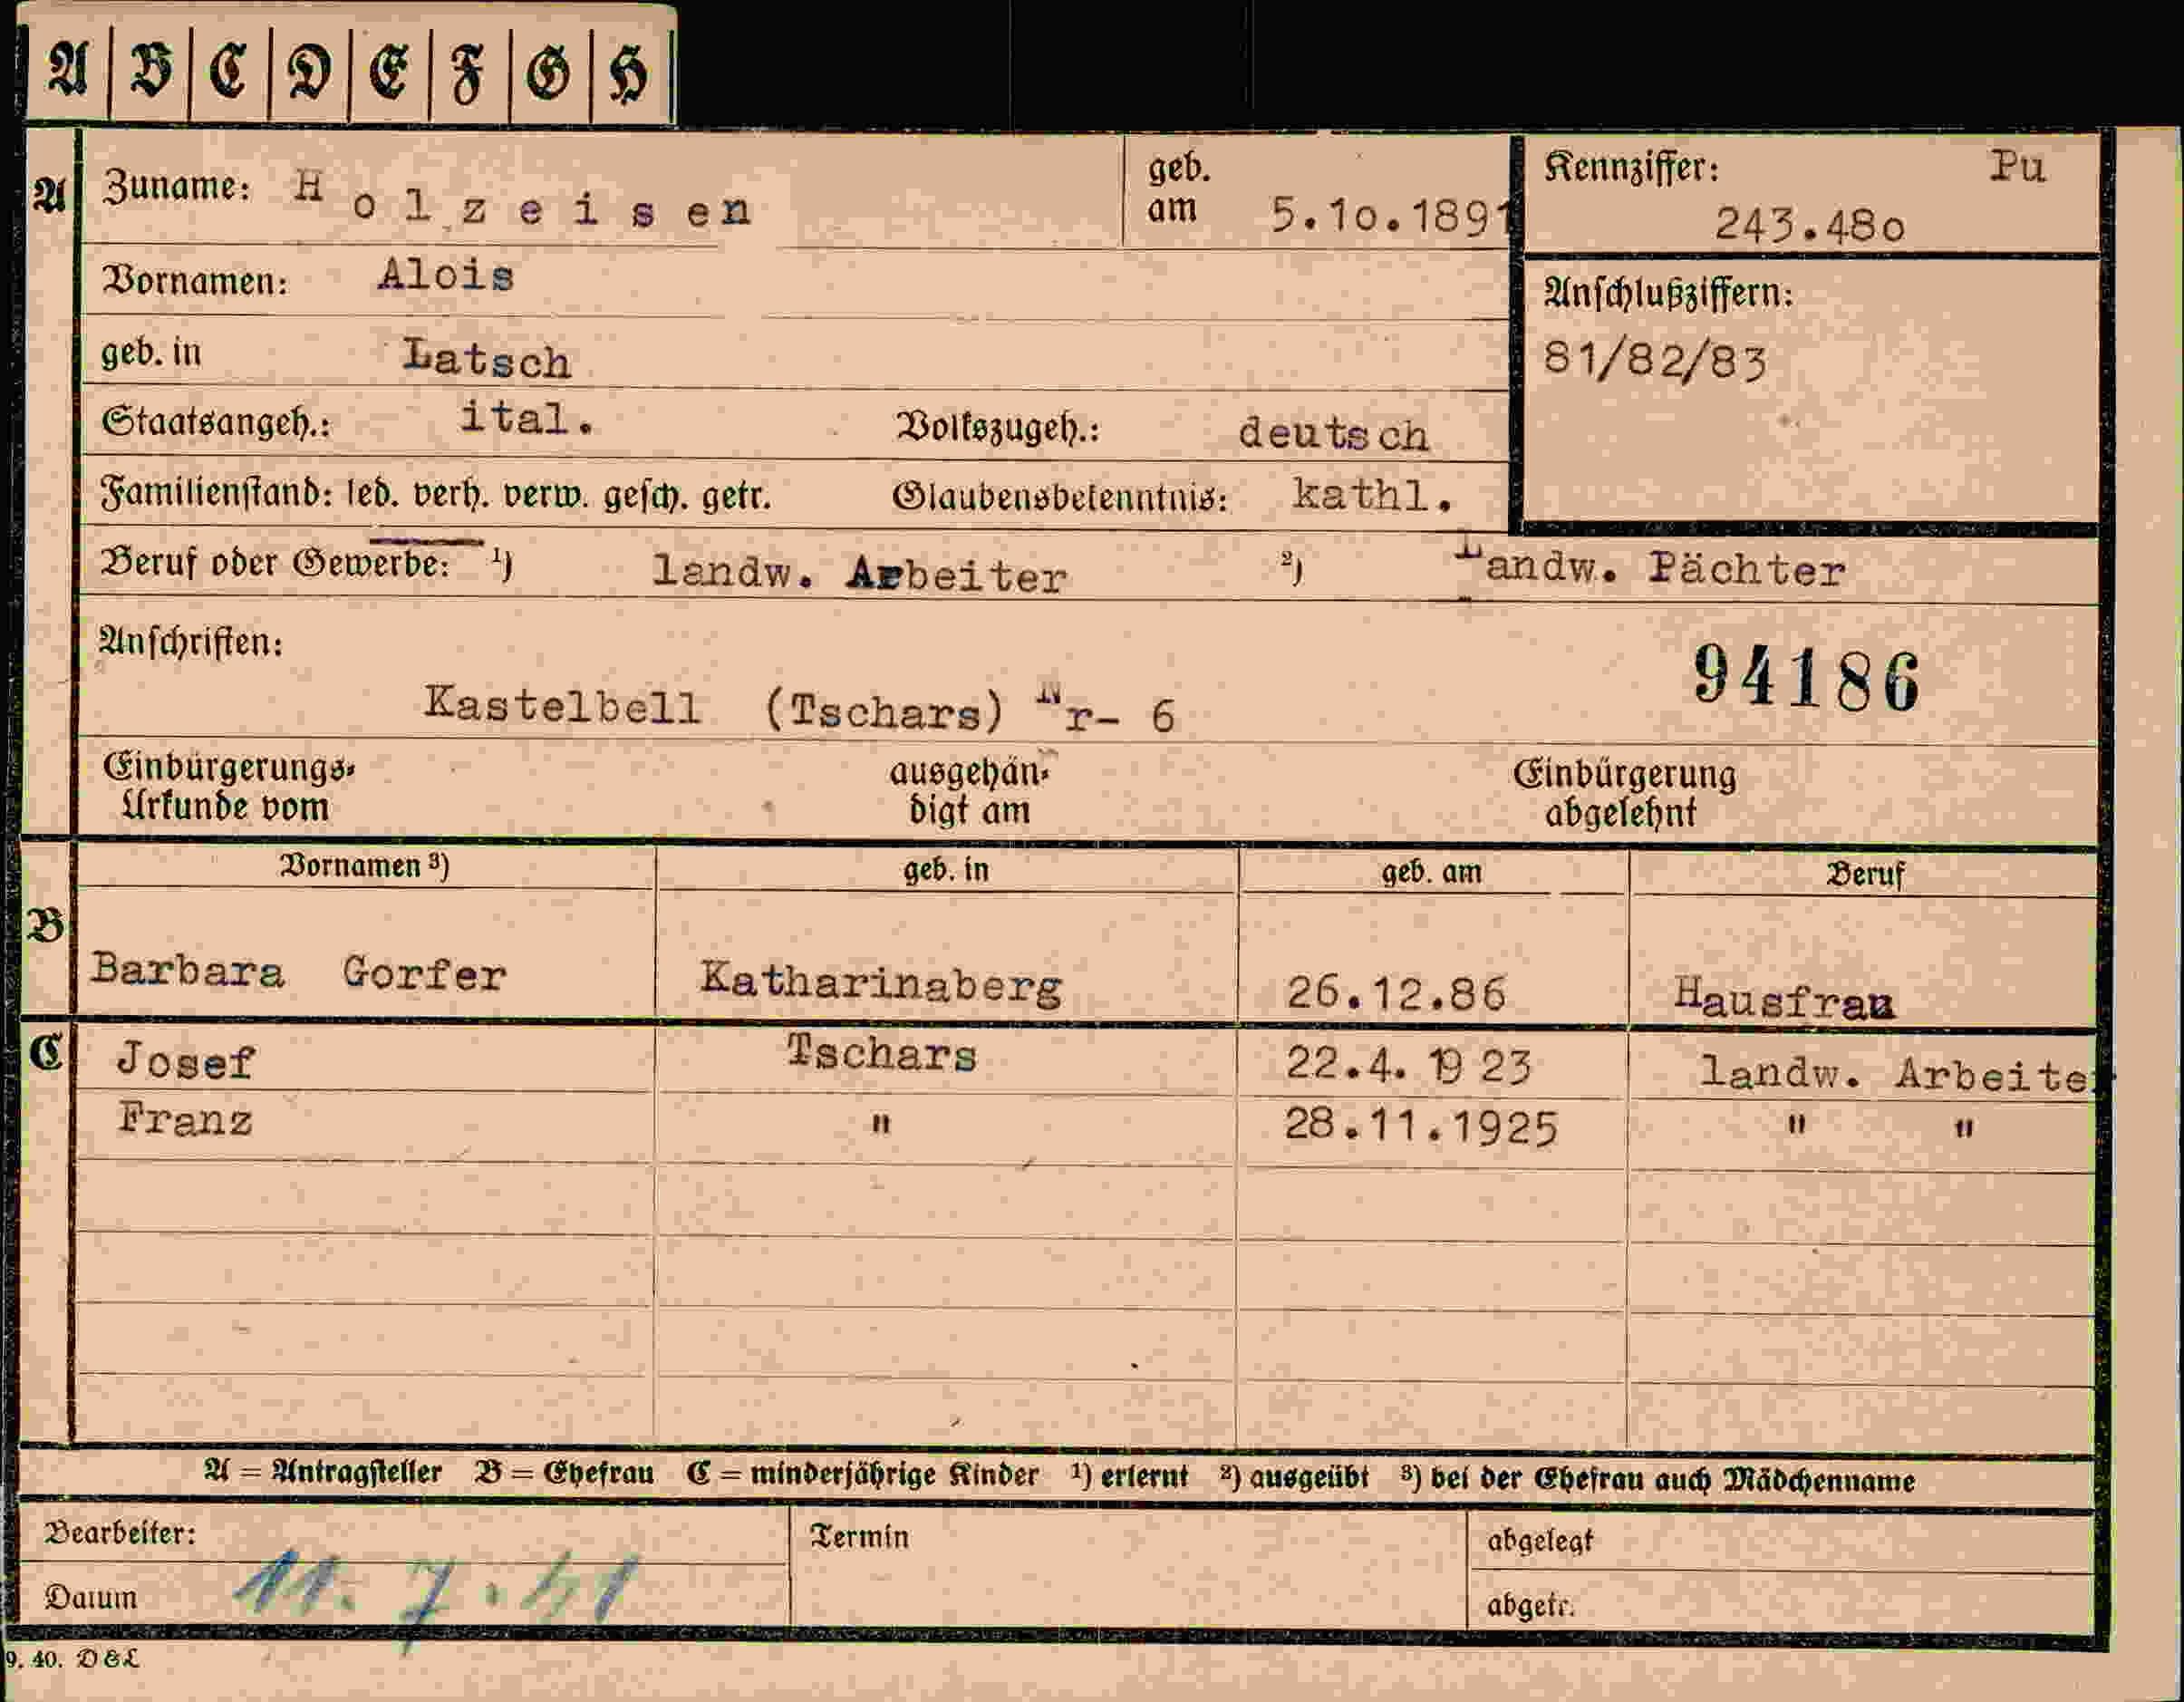 A B C D E F G H
A Zuname: Holzeisen geb. am 5.10.1891 Kennziffer: Pu
243.480
Vornamen: Alois Anschlußziffern:
geb. in Latsch 81/82/83
Staatsangeh.: ital. Volkszugeh.: deutsch
Familienstand: led. verh. verw. gesch. getr. Glaubensbekenntnis: kathl.
Beruf oder Gewerbe: 1) landw. Arbeiter 2) Landw. Pächter
Anschriften: 94186
Kastelbell (Tschars) Nr- 6
Einbürgerungs- ausgehän- Einbürgerung
Urkunde vom digt am abgelehnt
Vornamen 3) geb. in geb. am Beruf
B
Barbara Gorfer Katharinaberg 26.12.86 Hausfrau
C Josef Tschars 22.4. 1923 landw. Arbeiter
Franz " 28.11.1925 " "
A = Antragsteller B = Ehefrau C = minderjährige Kinder 1) erlernt 2) ausgeübt 3) bei der Ehefrau auch Mädchenname
Bearbeiter: Termin abgelegt
Datum 11.7.41 abgetr.
9. 40. D&L